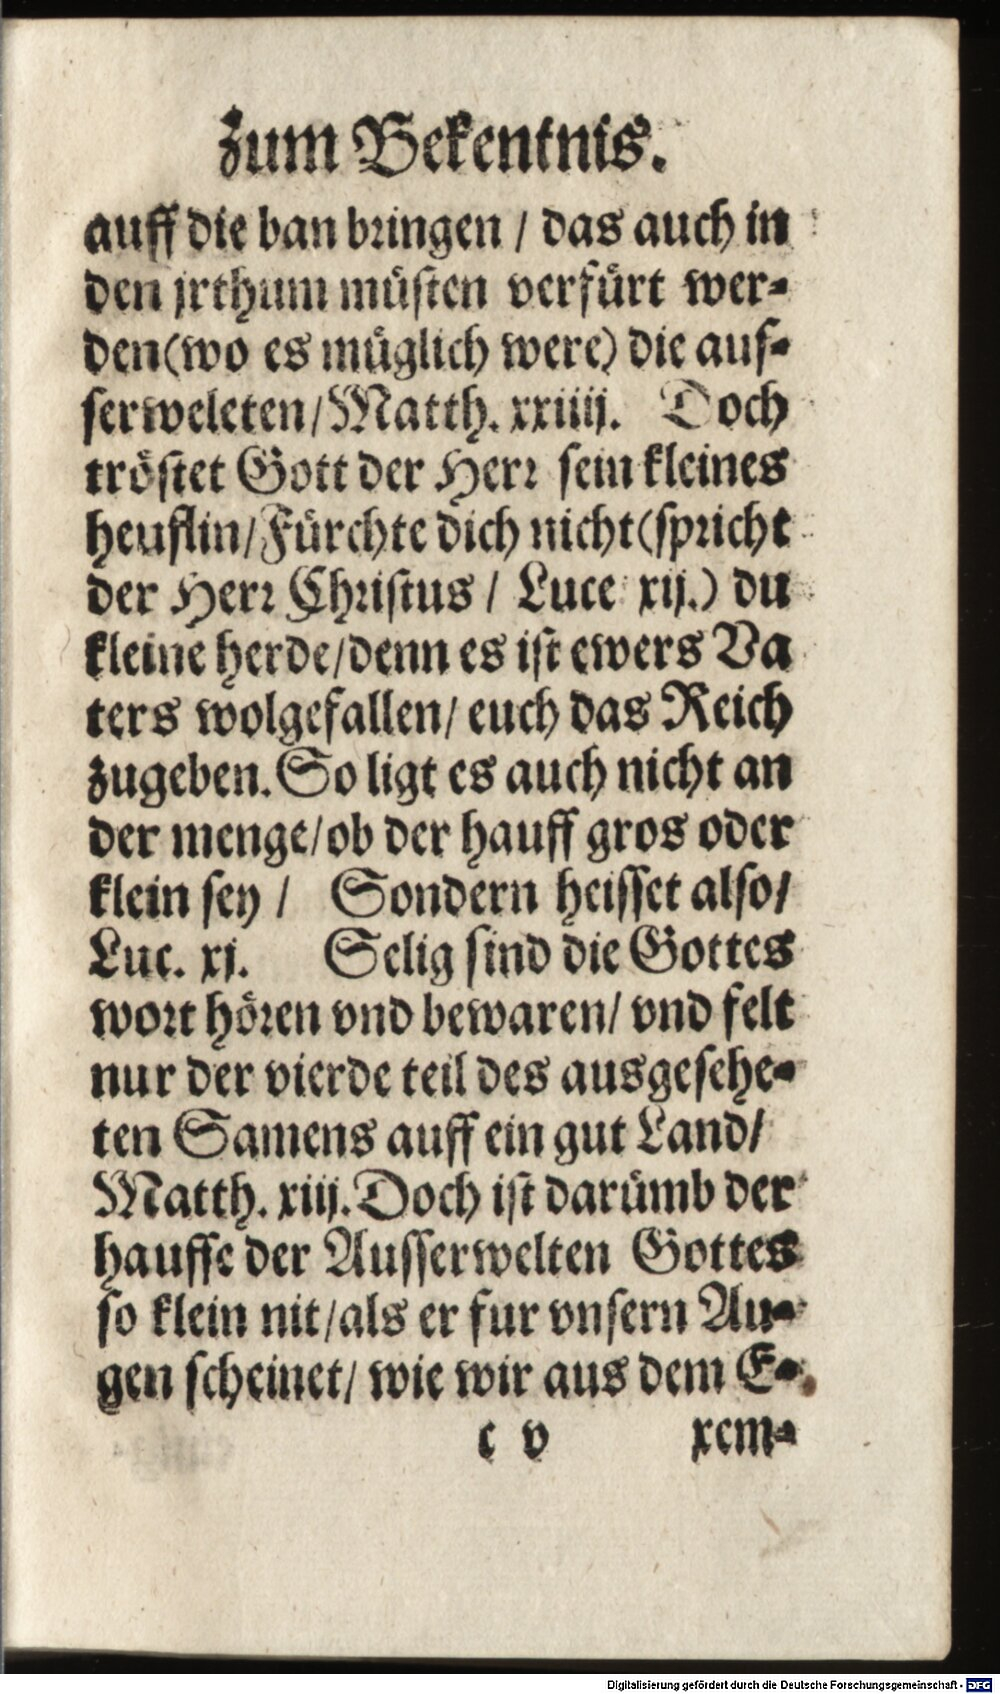 Zum Bekentnis.
auff die ban bringen / das auch in
den jrthum müsten verfürt wer-
den (wo es müglich were) die auſ-
ſerweleten / Matth. xxiiij. Doch
tröſtet Gott der Herr ſein kleines
heuflin / Fürchte dich nicht (ſpricht
der Herr Chriſtus / Luce xij.) du
kleine herde / denn es iſt ewers Va
ters wolgefallen / euch das Reich
zugeben. So ligt es auch nicht an
der menge / ob der hauff gros oder
klein ſey / Sondern heiſſet alſo /
Luc. xj. Selig ſind die Gottes
wort hören vnd bewaren / vnd felt
nur der vierde teil des ausgeſehe-
ten Samens auff ein gut Land /
Matth. xiij. Doch iſt darümb der
hauffe der Auſſerwelten Gottes
ſo klein nit / als er fur vnſern Au-
gen ſcheinet / wie wir aus dem E-
c v xem-
Digitalisierung gefördert durch die Deutsche Forschungsgemeinschaft - DFG